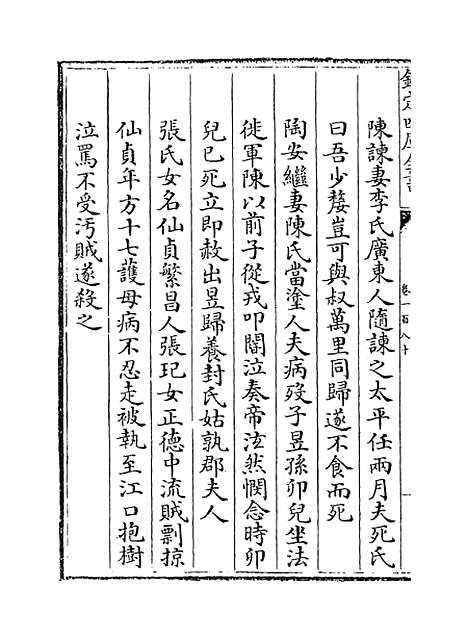 欽定四庫全書
卷一百八十
陳諫妻李氏廣東人隨諫之太平任兩月夫死氏
曰吾少嫠豈可與叔萬里同歸遂不食而死
陶安繼妻陳氏當塗人夫病歿子昱孫卯兒坐法
徙軍陳以前子從戎叩閽泣奏帝泫然憫念時卯
兒已死立即赦出昱歸養封氏姑孰郡夫人
張氏女名仙貞繁昌人張玘女正德中流賊剽掠
仙貞年方十七䕶母病不忍走被執至江口抱樹
泣罵不受汚賊遂殺之